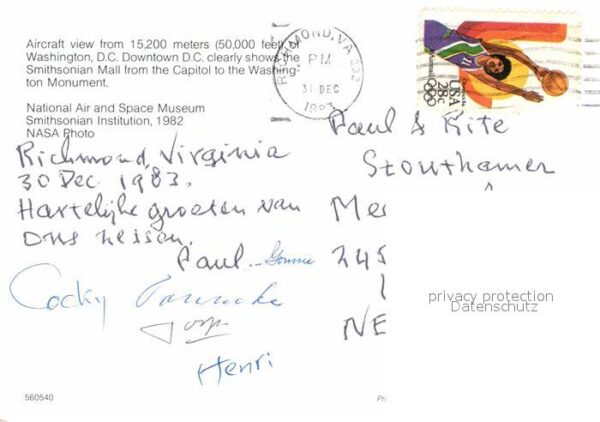 Aircraft view from 15,200 meters (50,000 feet) of
Washington, D.C. Downtown D.C. clearly shows the
Smithsonian Mall from the Capitol to the Washing-
ton Monument.
National Air and Space Museum
Smithsonian Institution, 1982
NASA Photo
RICHMOND, VA 232
PM
31 DEC
USA
28c
Richmond, Virginia
30 Dec. 1983.
Hartelijke groeten van
ons
Paul
Cocky
Joop
Henri
Paul & Rite
Stouthamer
Me
345
NE
privacy protection
Datenschutz
560540